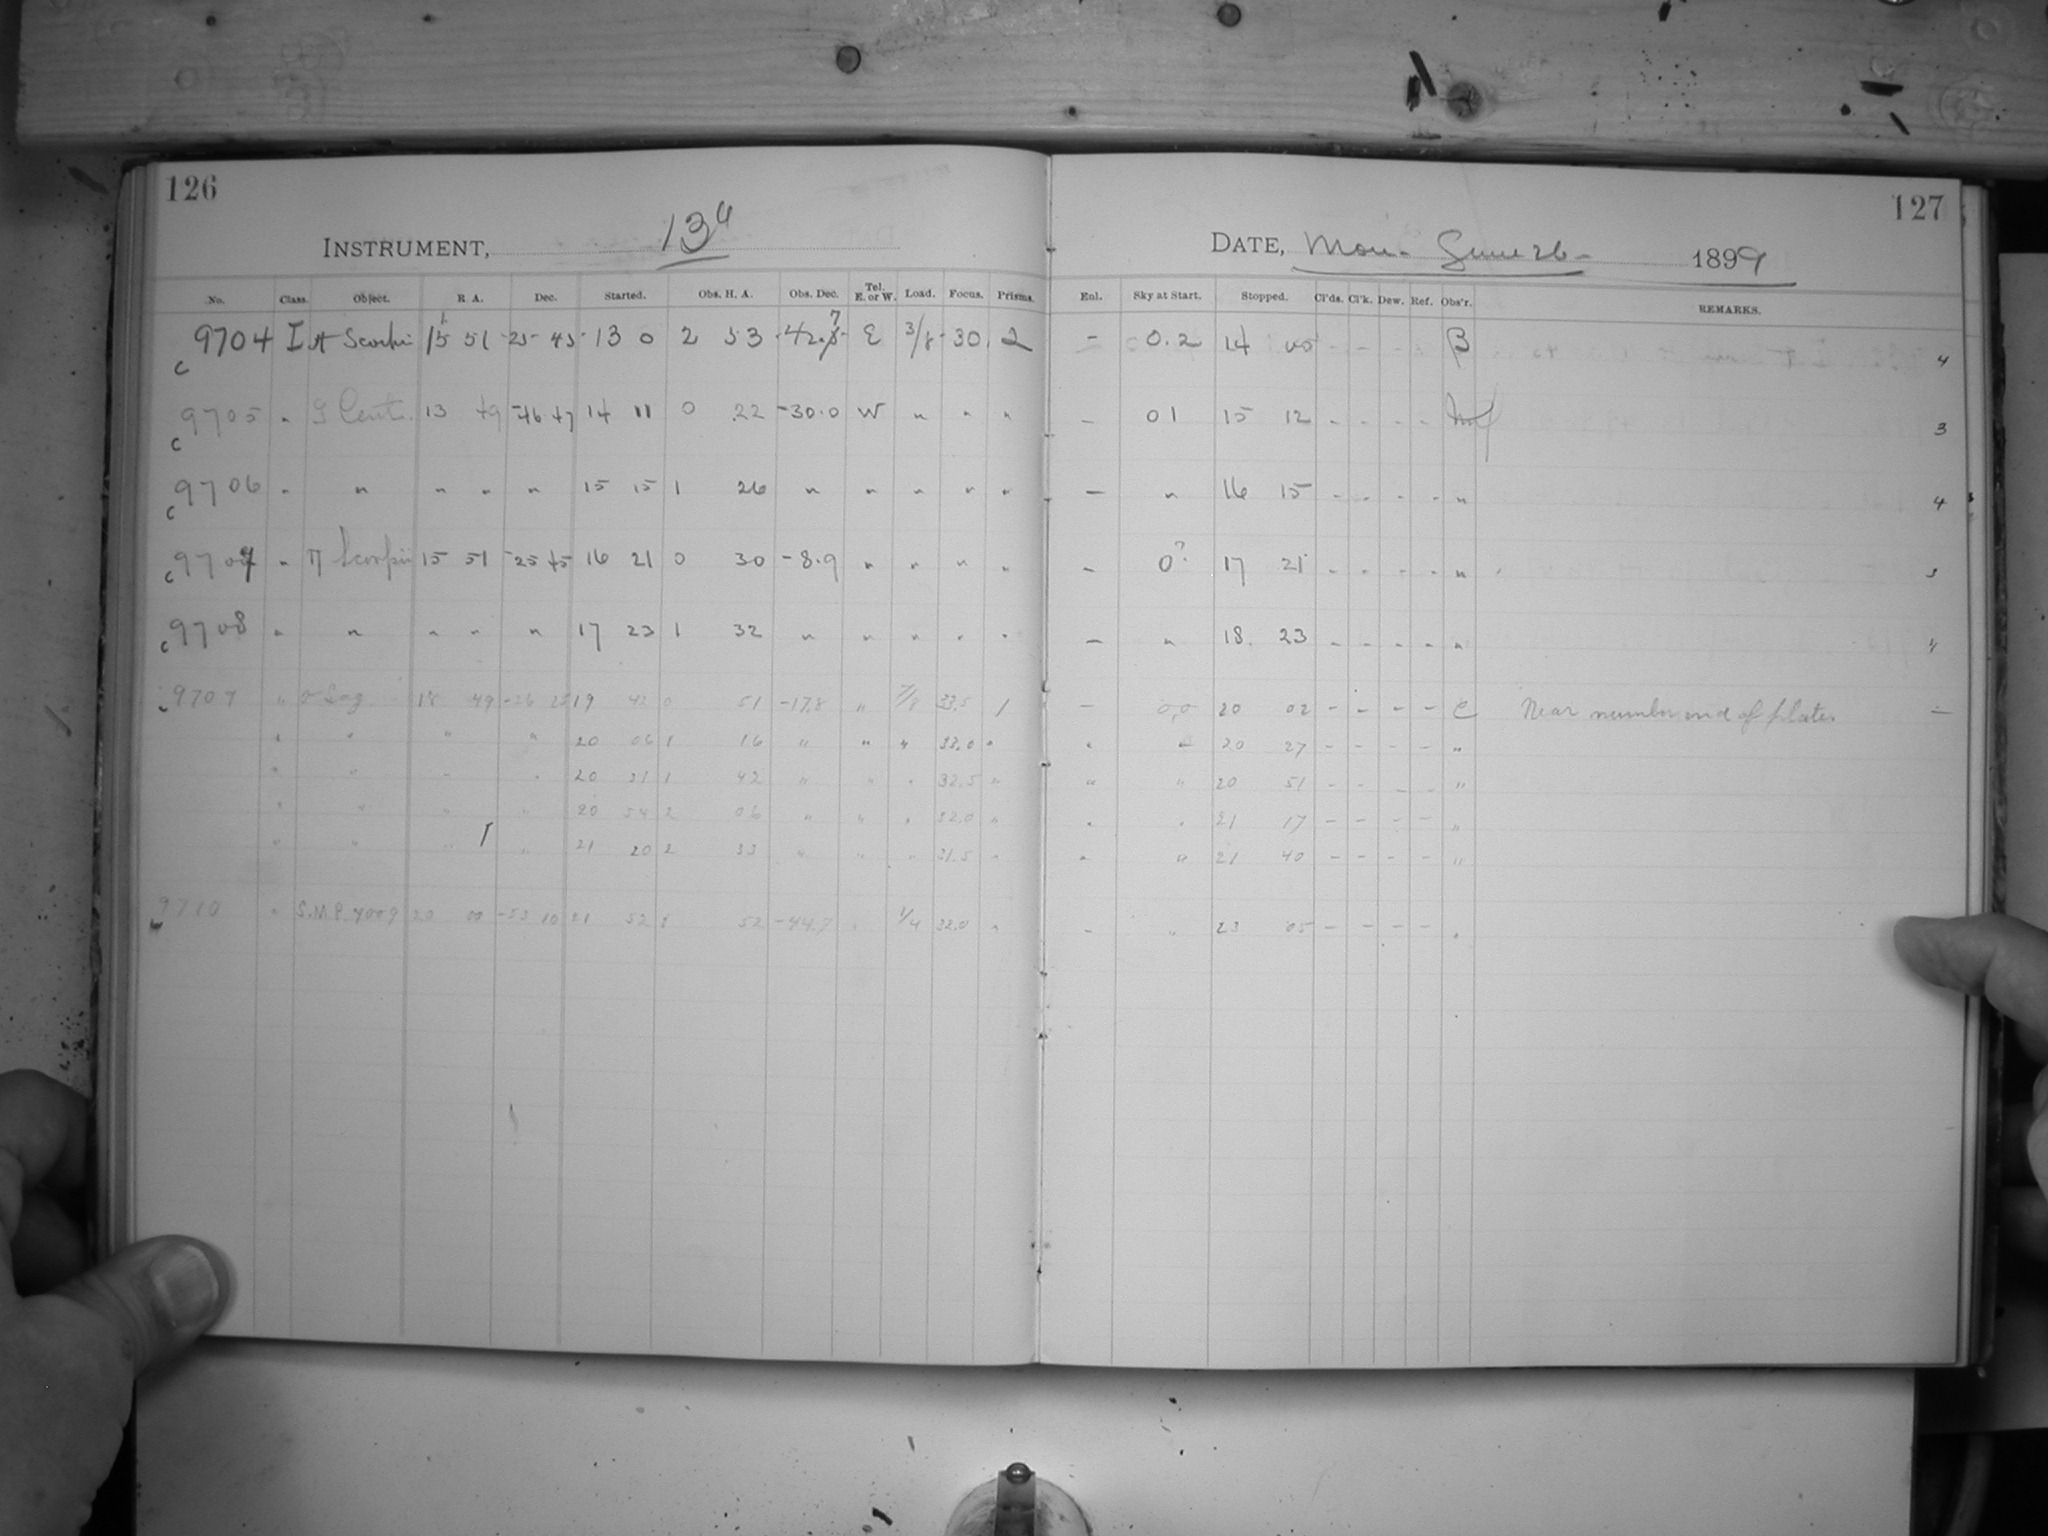 126
127
INSTRUMENT, 13"
DATE, Mon. June 26 - 1899
No. Class. Object. R A. Dec. Started. Obs. H. A. Obs. Dec. Tel. E. or W. Load. Focus. Prisms.
Enl. Sky at Start. Stopped. Cl'ds. Cl'k. Dew. Ref. Obs'r. REMARKS.
c 9704 I Scorpii 15 51 -25 - 45 - 13 0 2 53 E 3/8 - 30. 2 - 0.2 14 00 - - - - B 4
c 9705 " Cent. 13 49 -46 47 14 11 0 22 -30.0 W " " " - 01 15 12 - - - - 3
c 9706 " " " " " 15 15 1 26 " " " " " - " 16 15 - - - - " 4
c 9707 " π Scorpii 15 51 -25 45 16 21 0 30 -8.9 " " " " - 0? 17 21 - - - - "
c 9708 " " " " " 17 23 1 32 " " " " " - " 18. 23 - - - - " "
" σ Sag. 18 49 -26 25 19 42 0 51 -17.8 " 7/8 33.5 1 - 0,0 20 02 - - - - C Near number end of plate. -
" " " " 20 06 1 16 " " " 33.0 " " " 20 27 - - - - "
" " " " 20 31 1 42 " " " 32.5 " " " 20 51 - - - - "
" " " " 20 54 2 06 " " " 32.0 " " " 21 17 - - - - "
" " " " 21 20 2 33 " " " 31.5 " " " 21 40 - - - - "
9710 " S.M.P. 20 00 -53 10 21 52 1 52 -44.7 " 1/4 32.0 " - " 23 05 - - - - "